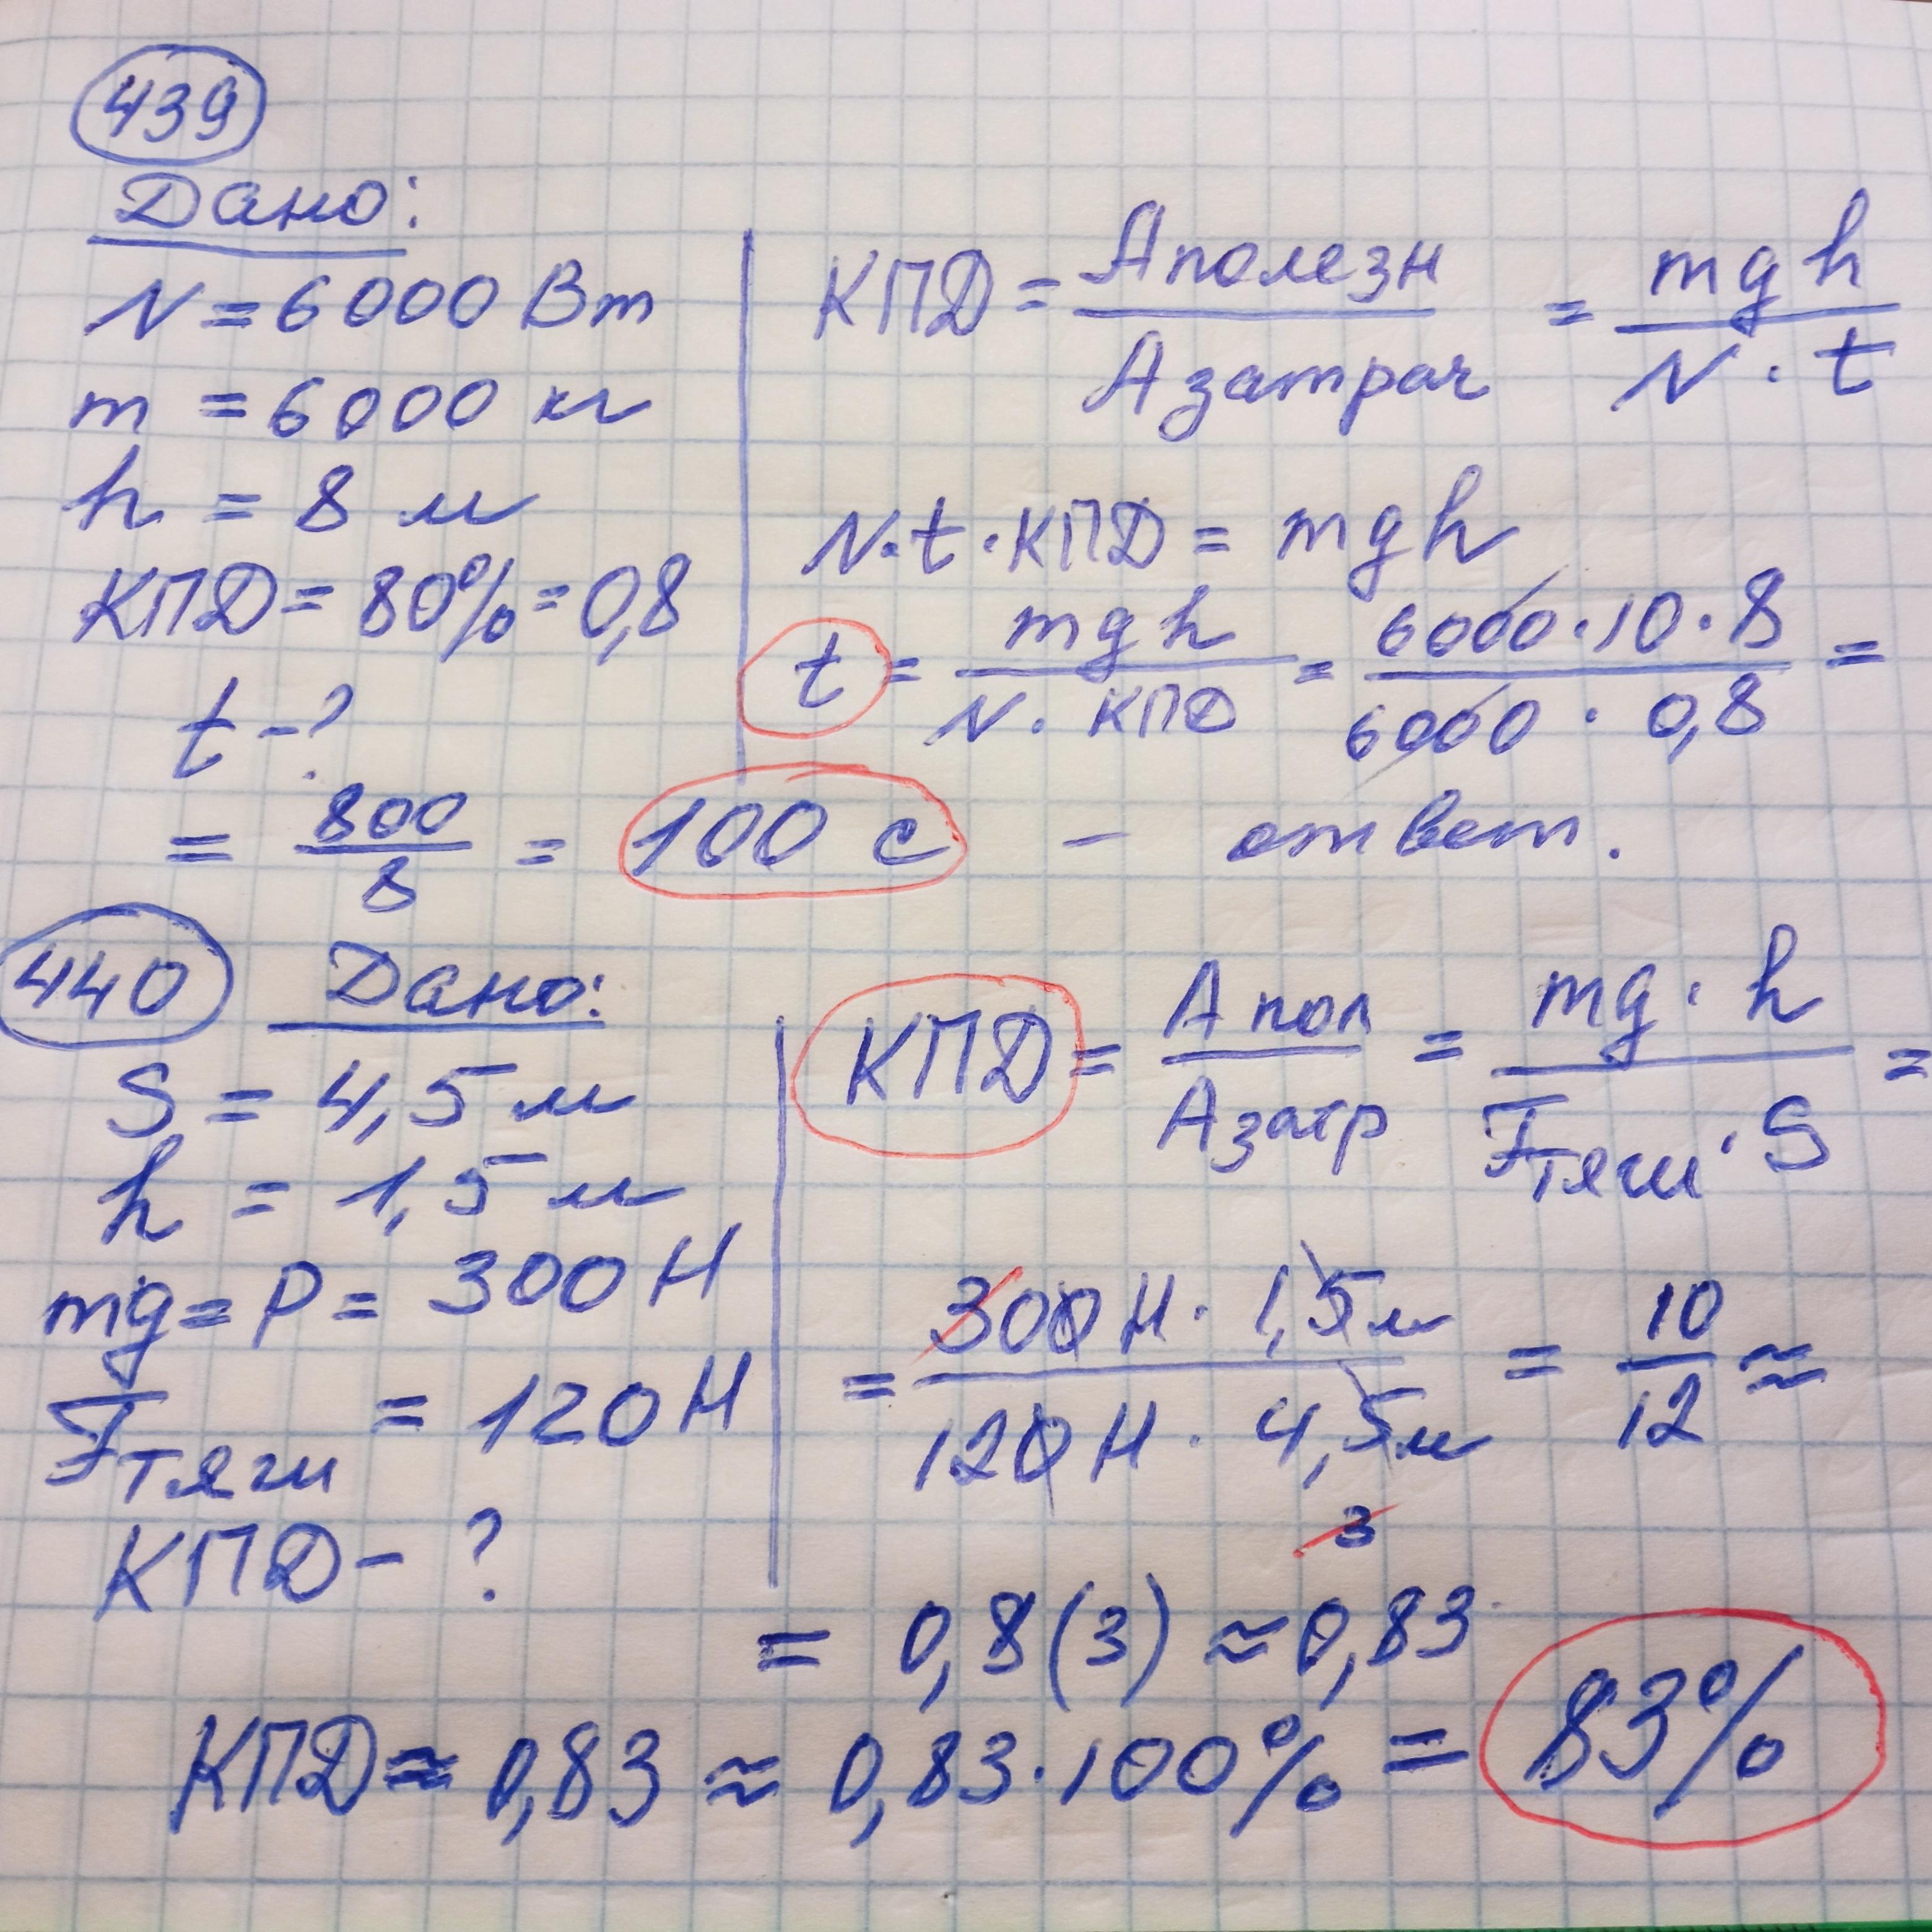 439
Дано:
N = 6000 Вт
m = 6000 кг
h = 8 м
КПД = 80% = 0,8
t - ?
КПД = Аполезн / Азатрач = mgh / N · t
N · t · КПД = mgh
t = mgh / N · КПД = 6000 · 10 · 8 / 6000 · 0,8 =
= 800 / 8 = 100 с - ответ.
440
Дано:
S = 4,5 м
h = 1,5 м
mg = P = 300 Н
Fтяги = 120 Н
КПД - ?
КПД = Апол / Азатр = mg · h / Fтяги · S =
= 300 Н · 1,5 м / 120 Н · 4,5 м = 10 / 12 ≈
3
= 0,8(3) ≈ 0,83
КПД ≈ 0,83 ≈ 0,83 · 100% = 83%